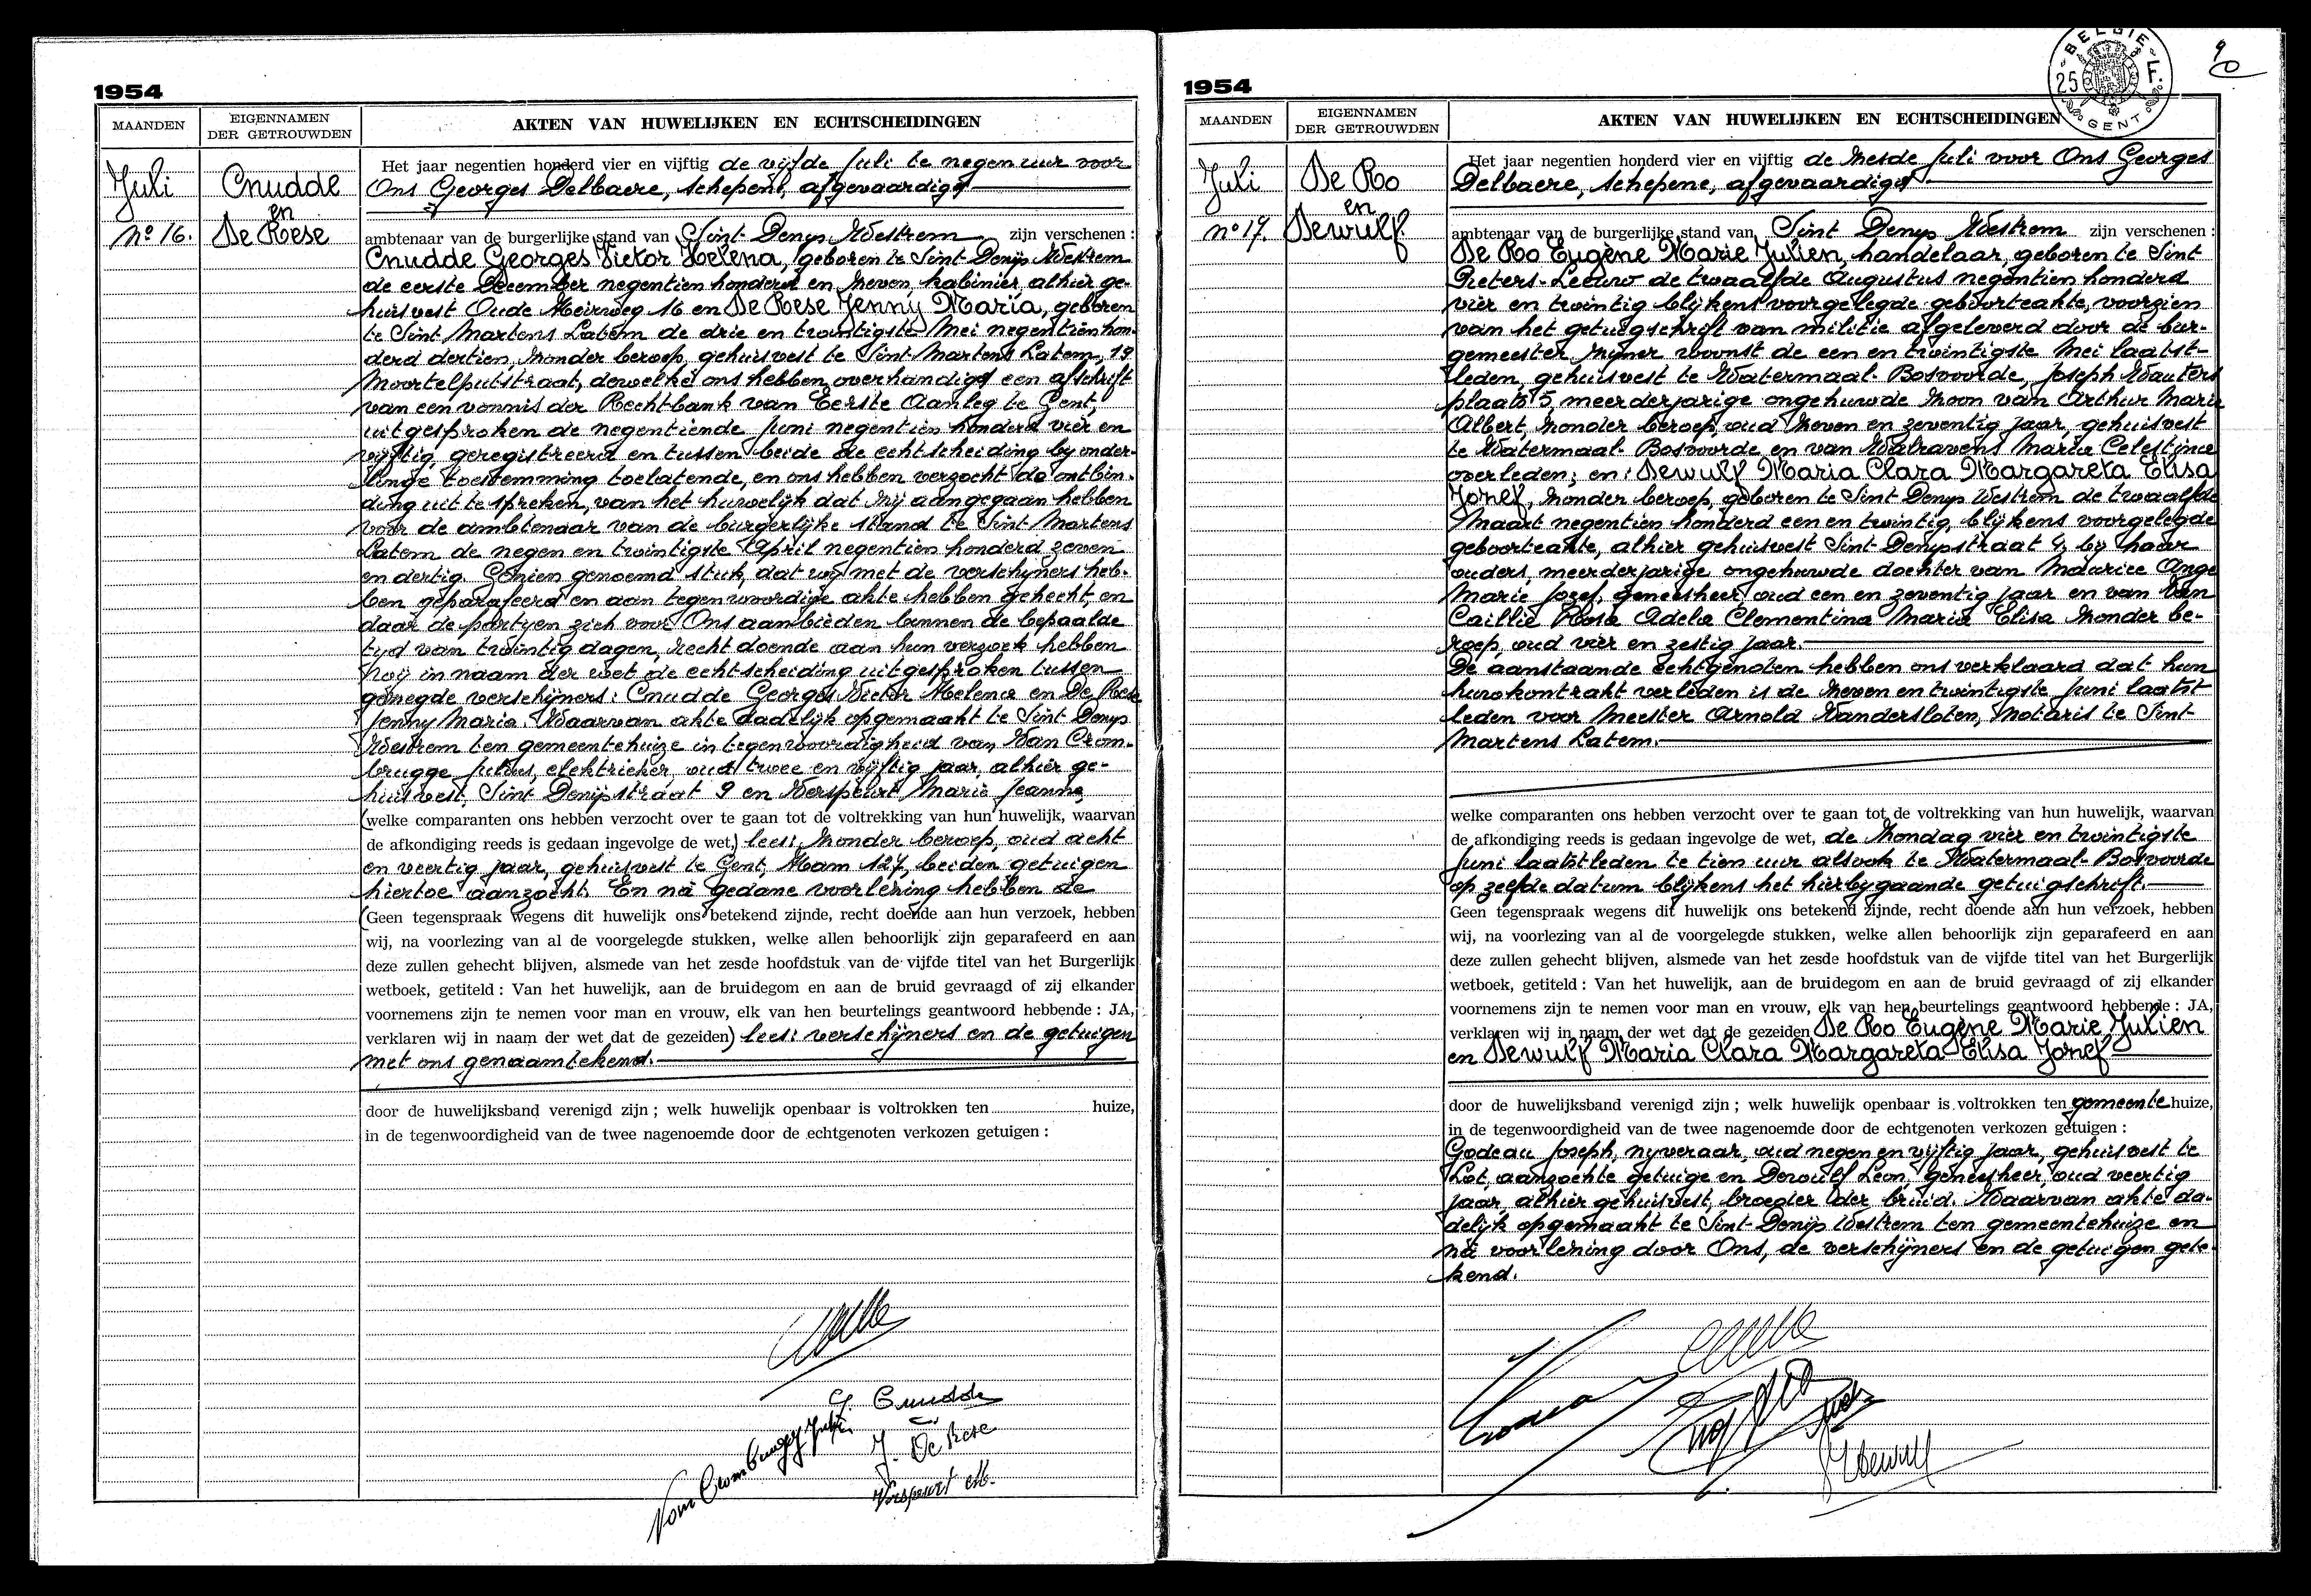 1954
MAANDEN
EIGENNAMEN
DER GETROUWDEN
AKTEN VAN HUWELIJKEN EN ECHTSCHEIDINGEN
Juli
No 16.
Cnudde
en
De Rese
Het jaar negentien honderd vier en vijftig de vijfde Juli te negen uur voor
Ons Georges Delbaere, schepene, afgevaardigd
ambtenaar van de burgerlijke stand van Sint Denys Westrem zijn verschenen :
Cnudde Georges Victor Helena, geboren te Sint Denijs Westrem
de eerste December negentien honderd en zeven, kabinier, alhier ge-
huisvest Oude Heirweg 16 en De Rese Jenny Maria, geboren
te Sint Martens Latem de drie en twintigste Mei negentien hon-
derd dertien, zonder beroep, gehuisvest te Sint Martens Latem, 19
Moortelputstraat, dewelke ons hebben overhandigd een afschrift
van een vonnis der Rechtbank van Eerste Aanleg te Gent,
uitgesproken de negentiende Juni negentien honderd vier en
vijftig, geregistreerd en tussen beide de echtscheiding by onder-
linge toestemming toelatende, en ons hebben verzocht de ontbin-
ding uit te spreken, van het huwelijk dat zij aangegaan hebben
voor de ambtenaar van de burgerlijke stand te Sint Martens
Latem de negen en twintigste April negentien honderd zeven
en dertig. Gezien genoemd stuk, dat wij met de verschijners heb-
ben geparafeerd en aan tegenwoordige akte hebben gehecht, en
daar de partyen zich voor Ons aanbieden binnen de bepaalde
tyd van twintig dagen, recht doende aan hun verzoek hebben
wij in naam der wet de echtscheiding uitgesproken tussen
gezegde verschijners: Cnudde Georges Victor Helena en De Rese
Jenny Maria. Waarvan akte dadelijk opgemaakt te Sint Denys
Westrem ten gemeentehuize in tegenwoordigheid van Van Crom-
brugge Julius, elektrieker, oud twee en vijftig jaar, alhier ge-
huisvest, Sint Denijsstraat 9 en Verspeurt Marie Jeanne,
(welke comparanten ons hebben verzocht over te gaan tot de voltrekking van hun huwelijk, waarvan
de afkondiging reeds is gedaan ingevolge de wet,) lees: zonder beroep, oud acht
en veertig jaar, gehuisvest te Gent, Ham 127, beiden getuigen
hiertoe aanzocht. En na gedane voorlezing hebben de
(Geen tegenspraak wegens dit huwelijk ons betekend zijnde, recht doende aan hun verzoek, hebben
wij, na voorlezing van al de voorgelegde stukken, welke allen behoorlijk zijn geparafeerd en aan
deze zullen gehecht blijven, alsmede van het zesde hoofdstuk van de vijfde titel van het Burgerlijk
wetboek, getiteld : Van het huwelijk, aan de bruidegom en aan de bruid gevraagd of zij elkander
voornemens zijn te nemen voor man en vrouw, elk van hen beurtelings geantwoord hebbende : JA,
verklaren wij in naam der wet dat de gezeiden) lees: verschijners en de getuigen
met ons genaamtekend.
door de huwelijksband verenigd zijn ; welk huwelijk openbaar is voltrokken ten huize,
in de tegenwoordigheid van de twee nagenoemde door de echtgenoten verkozen getuigen :
G. Cnudde
Van Crombrugge Julius
J. De Rese
Verspeurt M.
1954
BELGIE
25 F.
GENT
90
MAANDEN
EIGENNAMEN
DER GETROUWDEN
AKTEN VAN HUWELIJKEN EN ECHTSCHEIDINGEN
Juli
no 17.
De Ro
en
Dewulf
Het jaar negentien honderd vier en vijftig de zesde Juli voor Ons Georges
Delbaere, schepene, afgevaardigd
ambtenaar van de burgerlijke stand van Sint Denys Westrem zijn verschenen :
De Ro Eugène Marie Julien, handelaar, geboren te Sint
Pieters-Leeuw de twaalfde Augustus negentien honderd
vier en twintig blijkens voorgelegde geboorteakte, voorzien
van het getuigschrift van militie afgeleverd door de bur-
gemeester zyner woonst de een en twintigste Mei laatst-
leden, gehuisvest te Watermaal-Bosvoorde, Joseph Wauters
plaats 5, meerderjarige ongehuwde zoon van Arthur Marie
Albert, zonder beroep, oud zeven en zeventig jaar, gehuisvest
te Watermaal-Bosvoorde en van Walravens Maria Celestijne
overleden; en: Dewulf Maria Clara Margareta Elisa
Jozef, zonder beroep, geboren te Sint Denys Westrem de twaalfde
Maart negentien honderd een en twintig, blijkens voorgelegde
geboorteakte, alhier gehuisvest Sint-Denysstraat 4, by haar
ouders, meerderjarige ongehuwde dochter van Maurice Ange
Marie Jozef, geneesheer, oud een en zeventig jaar en van Van
Caillie Rosa Adela Clementina Maria Elisa zonder be-
roep, oud vier en zestig jaar.
De aanstaande echtgenoten hebben ons verklaard dat hun
huwkontrakt verleden is de zeven en twintigste Juni laatst
leden voor Meester Arnold Vandersloten, Notaris te Sint
Martens Latem.
welke comparanten ons hebben verzocht over te gaan tot de voltrekking van hun huwelijk, waarvan
de afkondiging reeds is gedaan ingevolge de wet, de Zondag vier en twintigste
Juni laatstleden te tien uur alsook te Watermaal-Bosvoorde
op zelfde datum blijkens het hierbygaande getuigschrift.
Geen tegenspraak wegens dit huwelijk ons betekend zijnde, recht doende aan hun verzoek, hebben
wij, na voorlezing van al de voorgelegde stukken, welke allen behoorlijk zijn geparafeerd en aan
deze zullen gehecht blijven, alsmede van het zesde hoofdstuk van de vijfde titel van het Burgerlijk
wetboek, getiteld : Van het huwelijk, aan de bruidegom en aan de bruid gevraagd of zij elkander
voornemens zijn te nemen voor man en vrouw, elk van hen beurtelings geantwoord hebbende : JA,
verklaren wij in naam der wet dat de gezeiden De Ro Eugène Marie Julien
en Dewulf Maria Clara Margareta Elisa Jozef
door de huwelijksband verenigd zijn ; welk huwelijk openbaar is voltrokken ten gemeente huize,
in de tegenwoordigheid van de twee nagenoemde door de echtgenoten verkozen getuigen :
Godeau Joseph, nyveraar, oud negen en vijftig jaar, gehuisvest te
Lot, aanzochte getuige en Dewulf Leon, geneesheer, oud veertig
jaar, alhier gehuisvest, broeder der bruid. Waarvan akte da-
delijk opgemaakt te Sint-Denijs Westrem ten gemeentehuize en
na voorlezing door Ons, de verschijners en de getuigen gete-
kend.
Dewulf